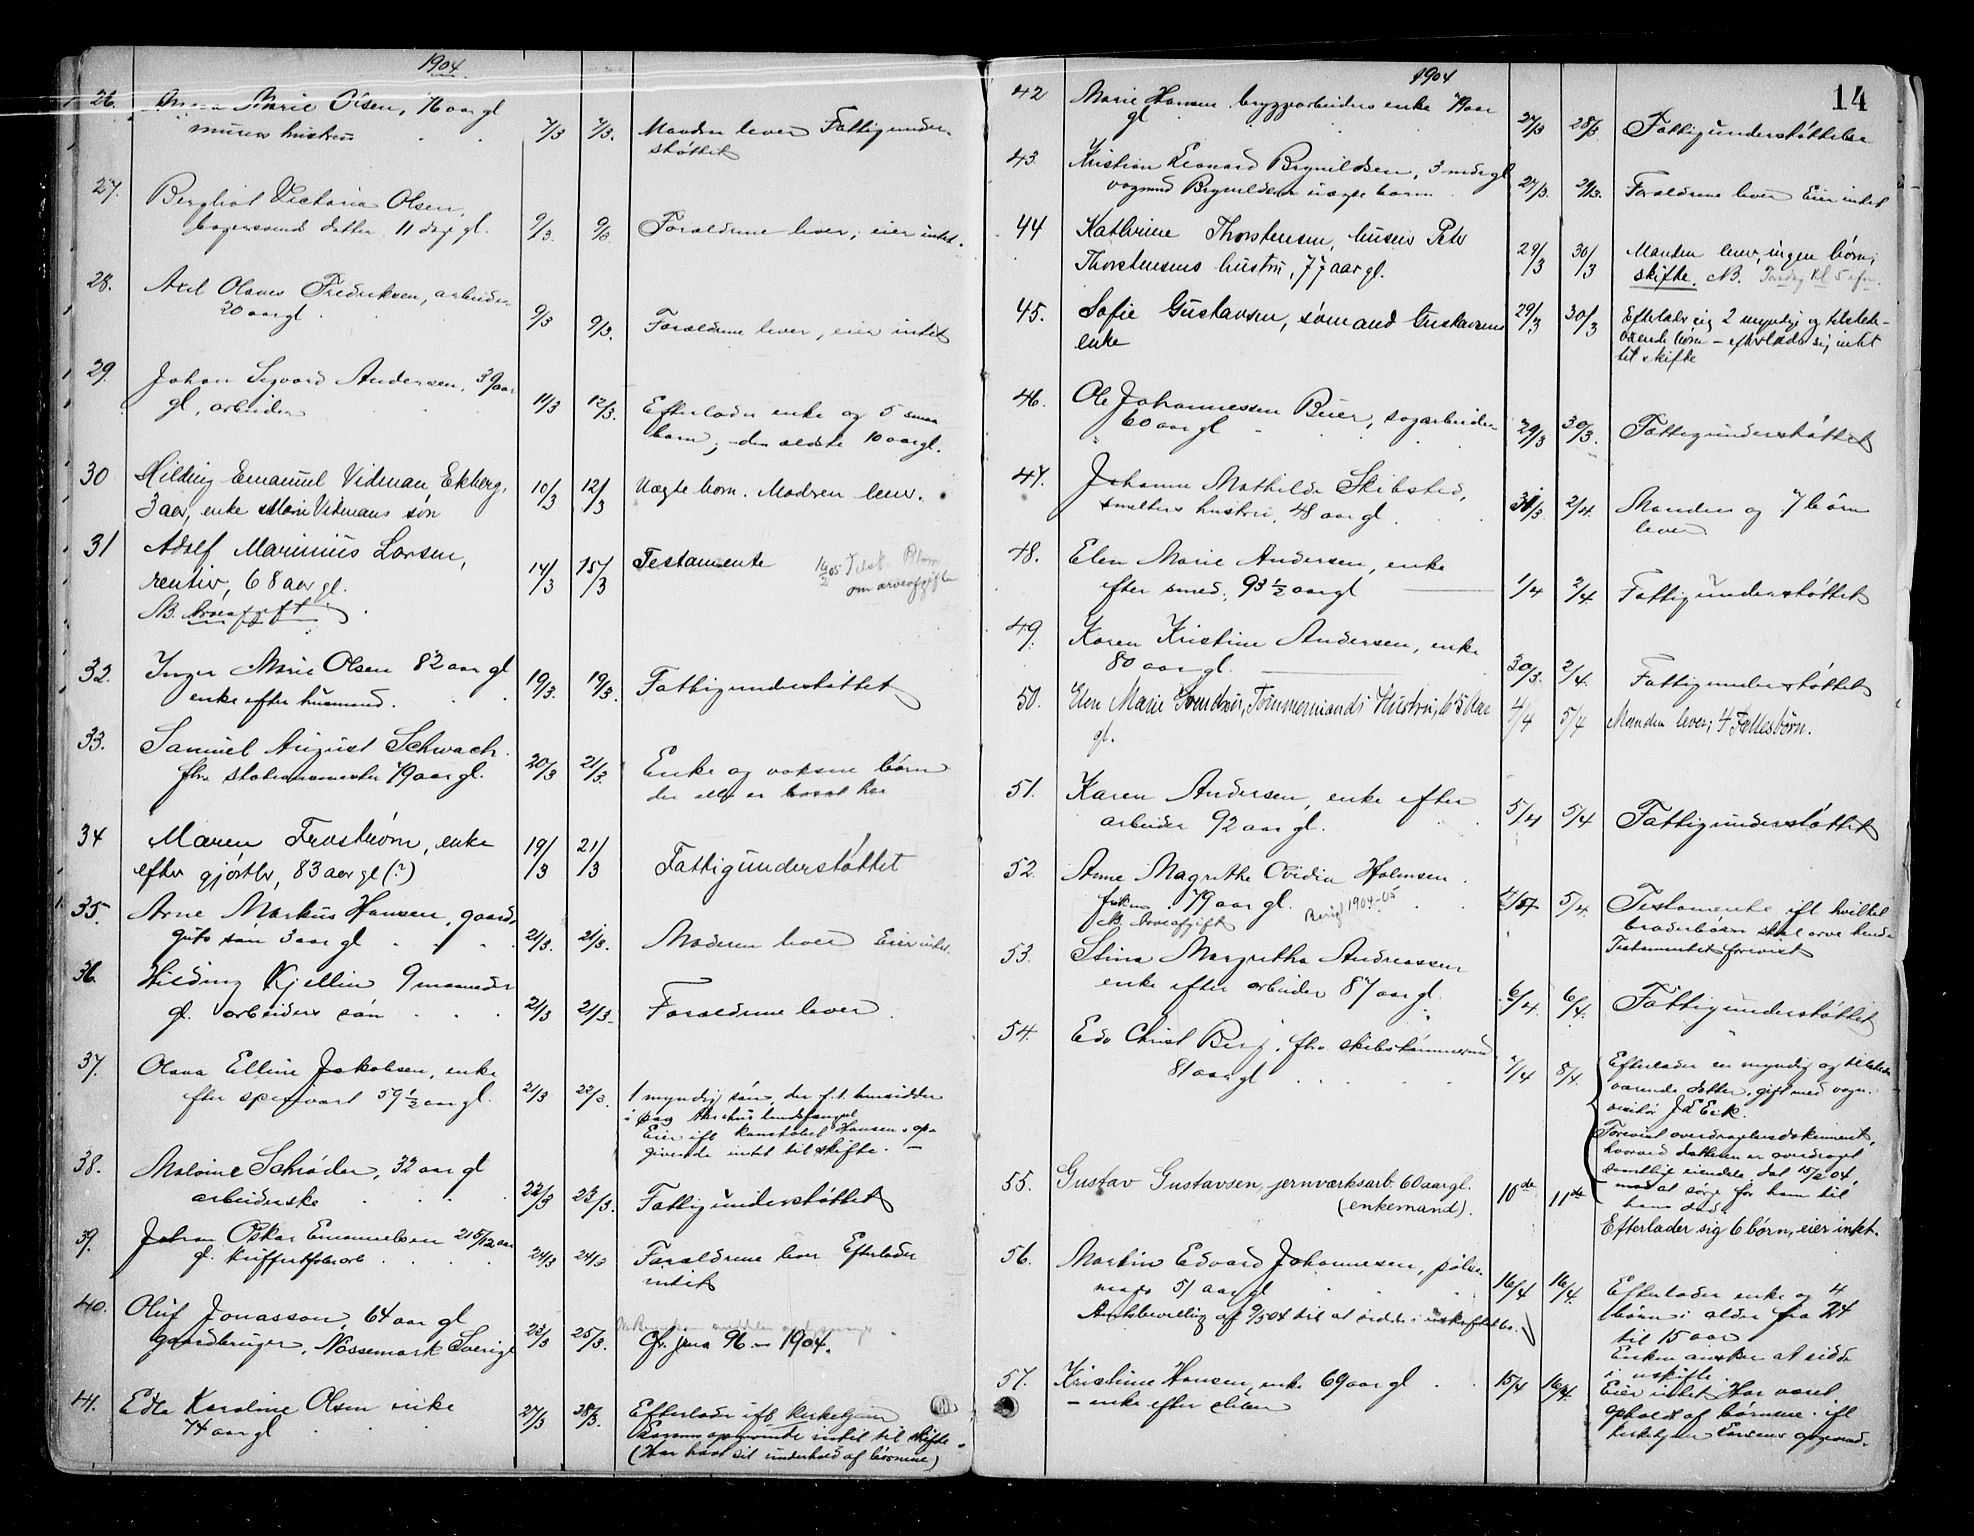 1904
26. Anna Marie Olsen, 76 aar gl
murers hustru 7/3 7/3. Manden lever Fattigunder-
støttet
27. Bergliot Victoria Olsen,
datter 11 dag gl. 9/3. 9/3 Forældrene lever, eier intet.
28. Axel Olaves Fredriksen, arbeider
20 aar gl. 9/3 9/3. Forældrene lever, eier intet
29. Johan Sigvard Andersen, 39 aar
gl, arbeider 11/3 12/3. Efterlader enke og 5 smaa
barn, den ældste 10 aar gl.
30 Hilding Emanuel Vidman Ekberg,
3 aar, enke Marie Vidmans søn 10/3 12/3 Uægte barn. Modren lever.
31 Adolf Marinius Larsen,
rentier, 68 aar gl. 14/3 15/3 Testamente 16/2 05 Tilsk.
om arveafgiften
NB. Arveafgift
32. Inger Marie Olsen 82 aar gl
enke efter husmand. 19/3. 19/3. Fattigunderstøttet
33. Samuel August Schwach
fhv. stationsmester 79 aar gl. 20/3 21/3. Enke og voksne børn
der alle er bosat her
34 Maren Frostrøm, enke
efter gjørtler, 83 aar gl (?) 19/3 21/3 Fattigunderstøttet
35. Arne Markus Hansen, gaard-
guts søn 3 aar gl 21/3. 21/3. Moderen lever Eier intet.
36. Hilding Kjellin 9 maaneder
gl. arbeiders søn 21/3 21/3. Forældrene lever.
37. Olava Elline Jakobsen, enke
efter 59 1/2 aar gl. 21/3 22/3. 1 myndig søn, der f.t. hensidder
i Akershus landsfængsel
Eier ifl. konstabel Hansens op-
givende intet til skifte. —
38. Malvine Schrøder, 32 aar gl
arbeiderske 22/3 23/3. Fattigunderstøttet
39. Johan Oskar Emanuelsen 21 5/12 aar
gl. kuffertfabr.arb 24/3 24/3 Forældrene lever Efterlader
intet
40. Oluf Jonasson, 64 aar gl
gaardbruger, Nössemark Sverige 23/3 25/3. Cfr. jna 96 — 1904.
41. Edla Karoline Olsen enke
74 aar gl 27/3 28/3. Efterlader ifl. kirketjener
opgivende intet til skifte.
(Har havt sit underhold af børnene)
1904
14
42 Marie Hansen bryggearbeiders enke 79 aar
gl 27/3 28/3 Fattigunderstøttelse
43. Kristian Leonard Brynildsen, 3 mdr gl
vognmd Brynildsens uægte barn 27/3. 29/3. Forældrene lever Eier intet
44 Kathrine Thorstensen, huseier Peter
Thorstensens hustru, 77 aar gl. 29/3 30/3 Manden lever, ingen børn;
skifte. NB. Torsdag kl 5 efm.
45. Sofie Gustavsen, sømand Gustavsens
enke 29/3 30/3 Efterlader sig 2 myndige og tilstede-
værende børn – efterlader sig intet
til skifte
46. Ole Johannessen Buer, sagarbeider
60 aar gl 29/3 30/3. Fattigunderstøttet
47. Johanne Mathilde Skibsted,
smelters hustru, 48 aar gl 31/3. 2/4. Manden og 7 børn
lever
48. Elen Marie Andersen, enke
efter smed, 93 1/2 aar gl 1/4 2/4 Fattigunderstøttet
49. Karen Kristine Andersen, enke
80 aar gl. 30/3. 2/4. Fattigunderstøttet
50. Elen Marie Svendsen, Tømmermands Hustru, 65 Aar
gl. 4/4 5/4 Manden lever; 4 Fællesbørn.
51. Karen Andersen, enke efter
arbeider 92 aar gl. 5/4 5/4 Fattigunderstøttet
52. Anne Magrethe Ovidia Holmsen
frøken 79 aar gl. 4/4 5/4. Testamente ifl hvilket
broderbørn skal arve hende
NB Arveafgift 1904-05 Testamentet forevist
53. Stina Margretha Andreassen
enke efter arbeider 87 aar gl. 6/4 6/4. Fattigunderstøttet
54. Edv Christ Berg, fhv. skibstømmermand
81 aar gl 7/4 8/4. Efterlader en myndig og tilstede
værende datter, gift med vogn-
visitør J E Eek.
Forevist overdragelsesdokument,
hvorved datteren er overdraget
samtlige eiendele, dat 15/2 04,
mod at sørge for ham til
hans død.
55. Gustav Gustavsen, jernværksarb. 60 aar gl.
(enkemand). 10de 11te Efterlader sig 6 børn, eier intet.
56. Martin Edvard Johannesen, pølse-
mager 51 aar gl 16/4 16/4. Efterlader enke og 4
børn i alder fra 24
til 15 aar
Enken ønsker at sidde
i uskifte.
Amtsbevilling af 9/5 04 til at sidde i uskiftet bo.
57. Kristine Hansen, enke 69 aar gl 15/4 16/4. Eier intet Har været
– enke efter opholdt af børnene ifl
kirketjener Larsens opgivende.